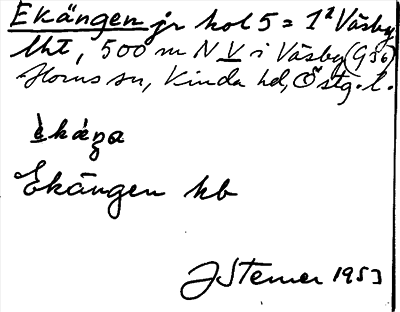 Ekängen jr kol 5 = 1² Väsby
Uht, 500 m N V i Väsby (G 36)
Horns sn, Kinda hd, Östg. l.
èkæŋa
Ekängen kb
J Sterner 1953